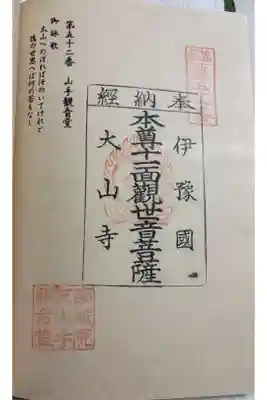 奉納經
伊豫國
本尊十一面觀世音菩薩
太山寺
第五十二番　山手観音堂
御詠歌
太山へのぼれば汗のいでけれど
後の世思へば何の苦もなし